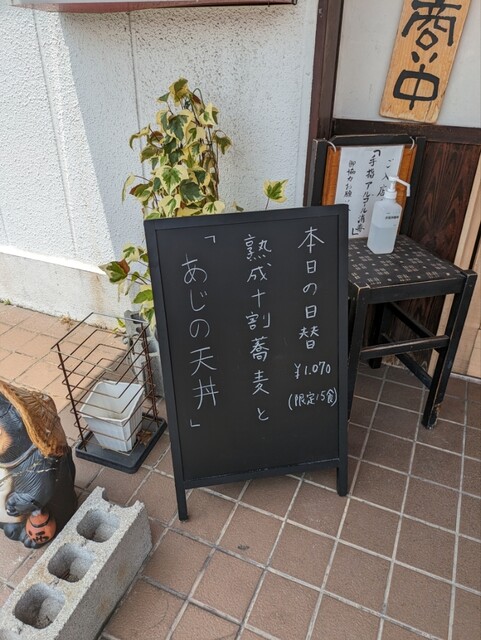 本日の日替
¥1.070
(限定15食)
熟成十割蕎麦と
「あじの天丼」
商い中
ご入店
「手指アルコール消毒」
御協力お願い